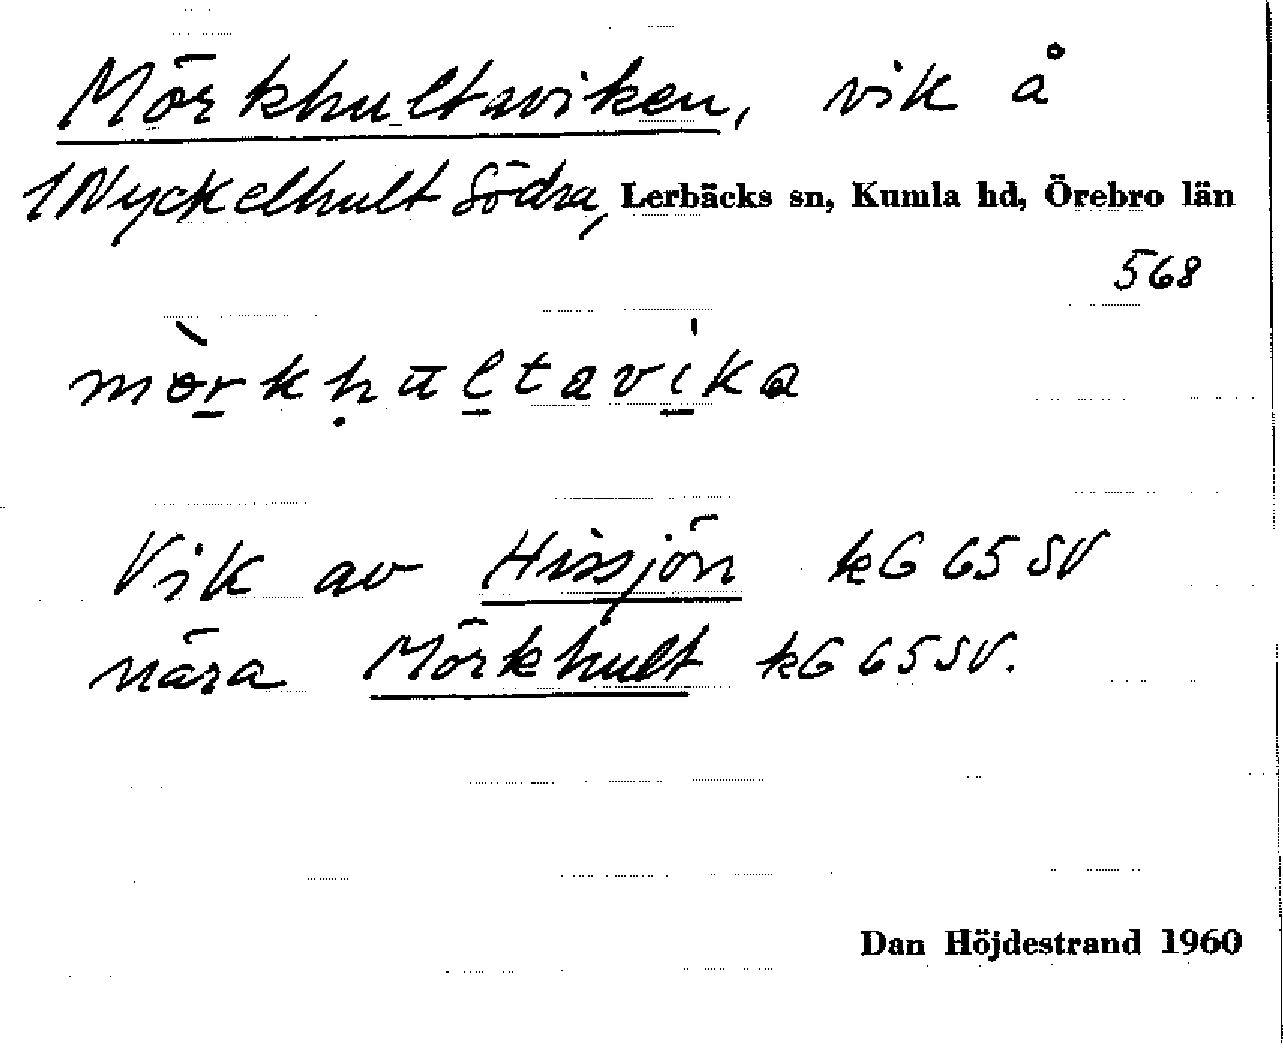 Mörkhultaviken, vik å
1 Nyckelhult Södra, Lerbäcks sn, Kumla hd, Örebro län
568
mòrkḥultavika
Vik av Hissjön k6 65 SV
nära Mörkhult k6 65 SV.
Dan Höjdestrand 1960